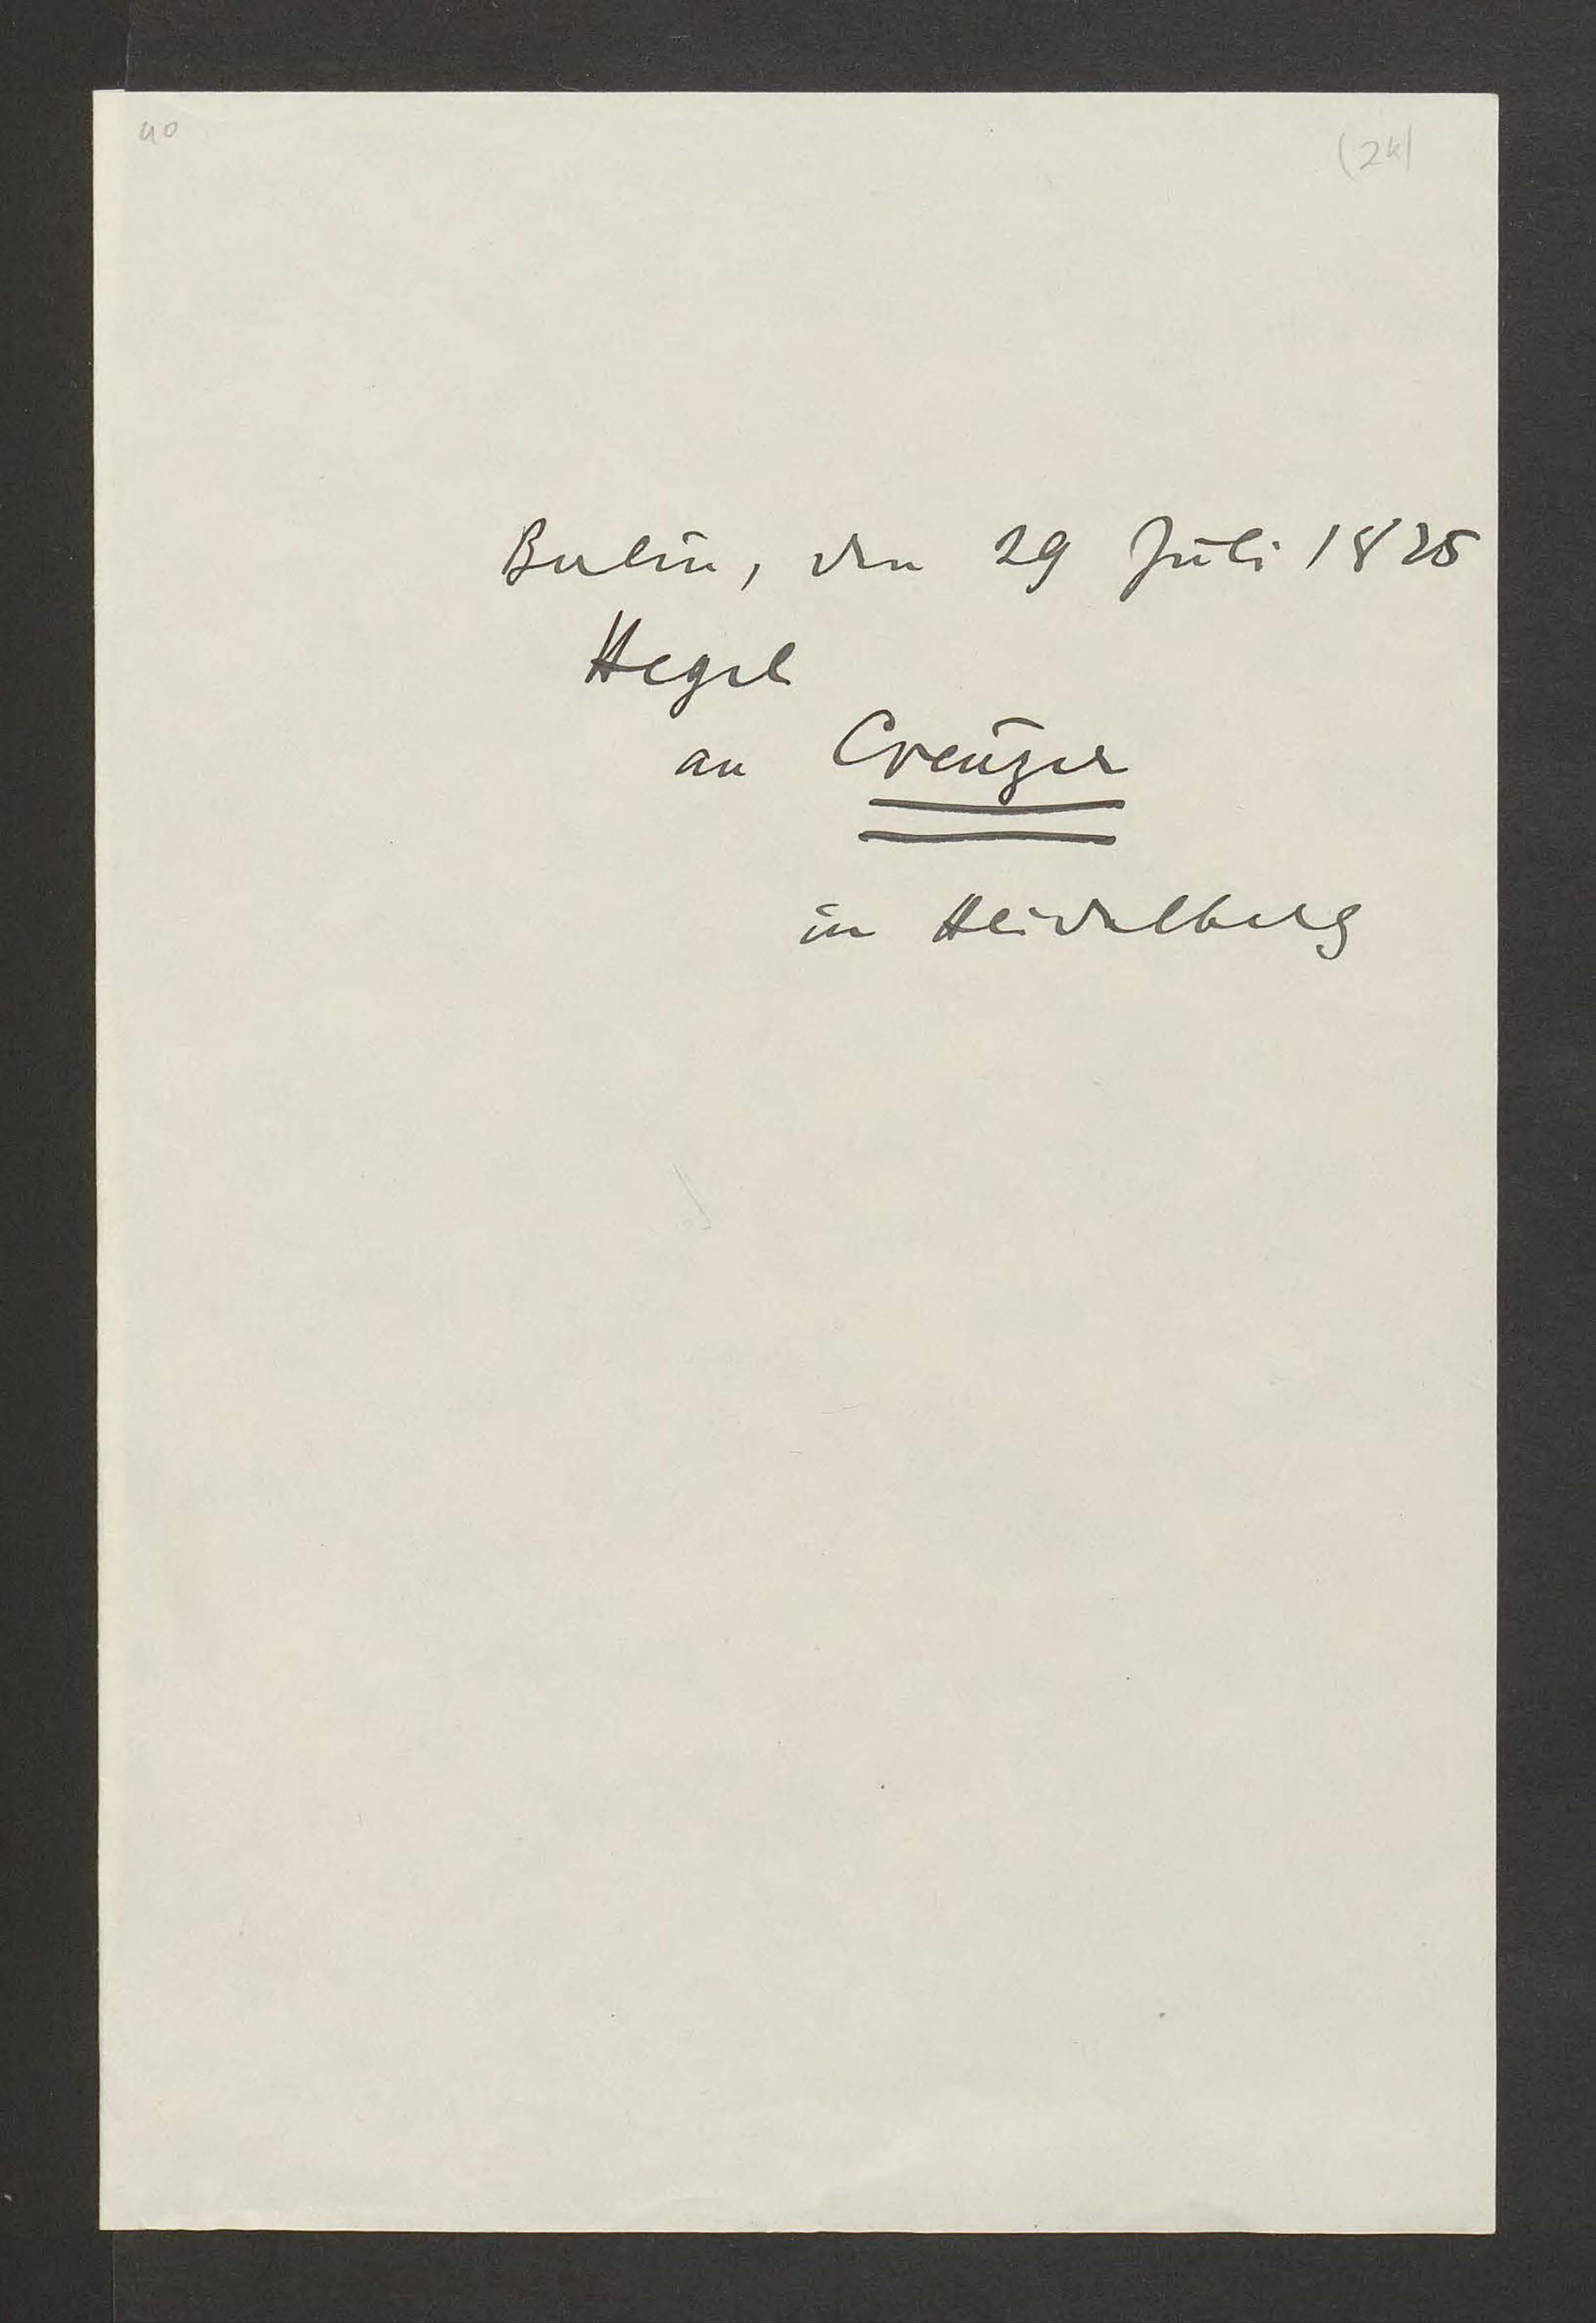 40
(2k)
Berlin, den 29 Juli 1825
Hegel
an Creuzer
in Heidelberg